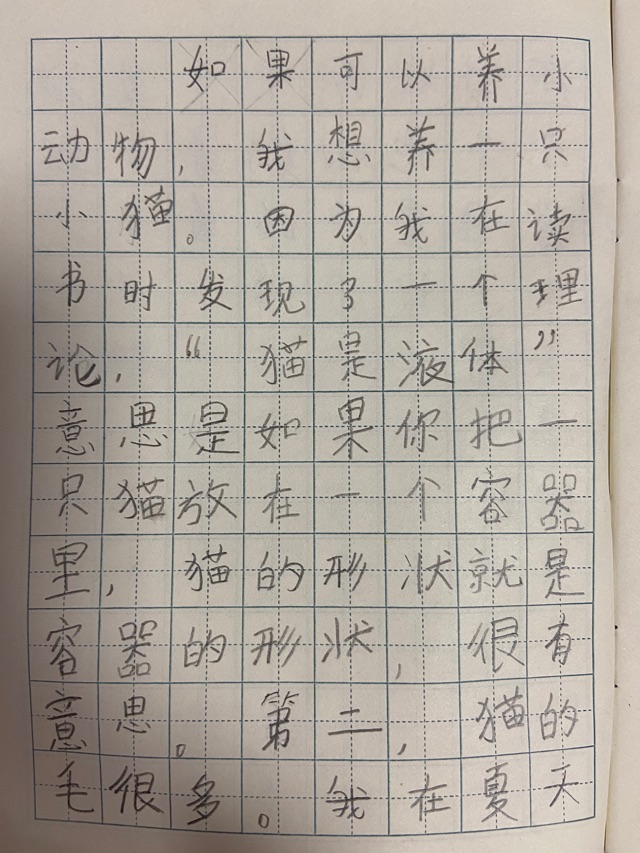 如果可以养小
动物，我想养一只
小猫。因为我在读
书时发现了一个理
论，“猫是液体”
意思是如果你把一
只猫放在一个容器
里，猫的形状就是
容器的形状，很有
意思。第二，猫的
毛很多。我在夏天